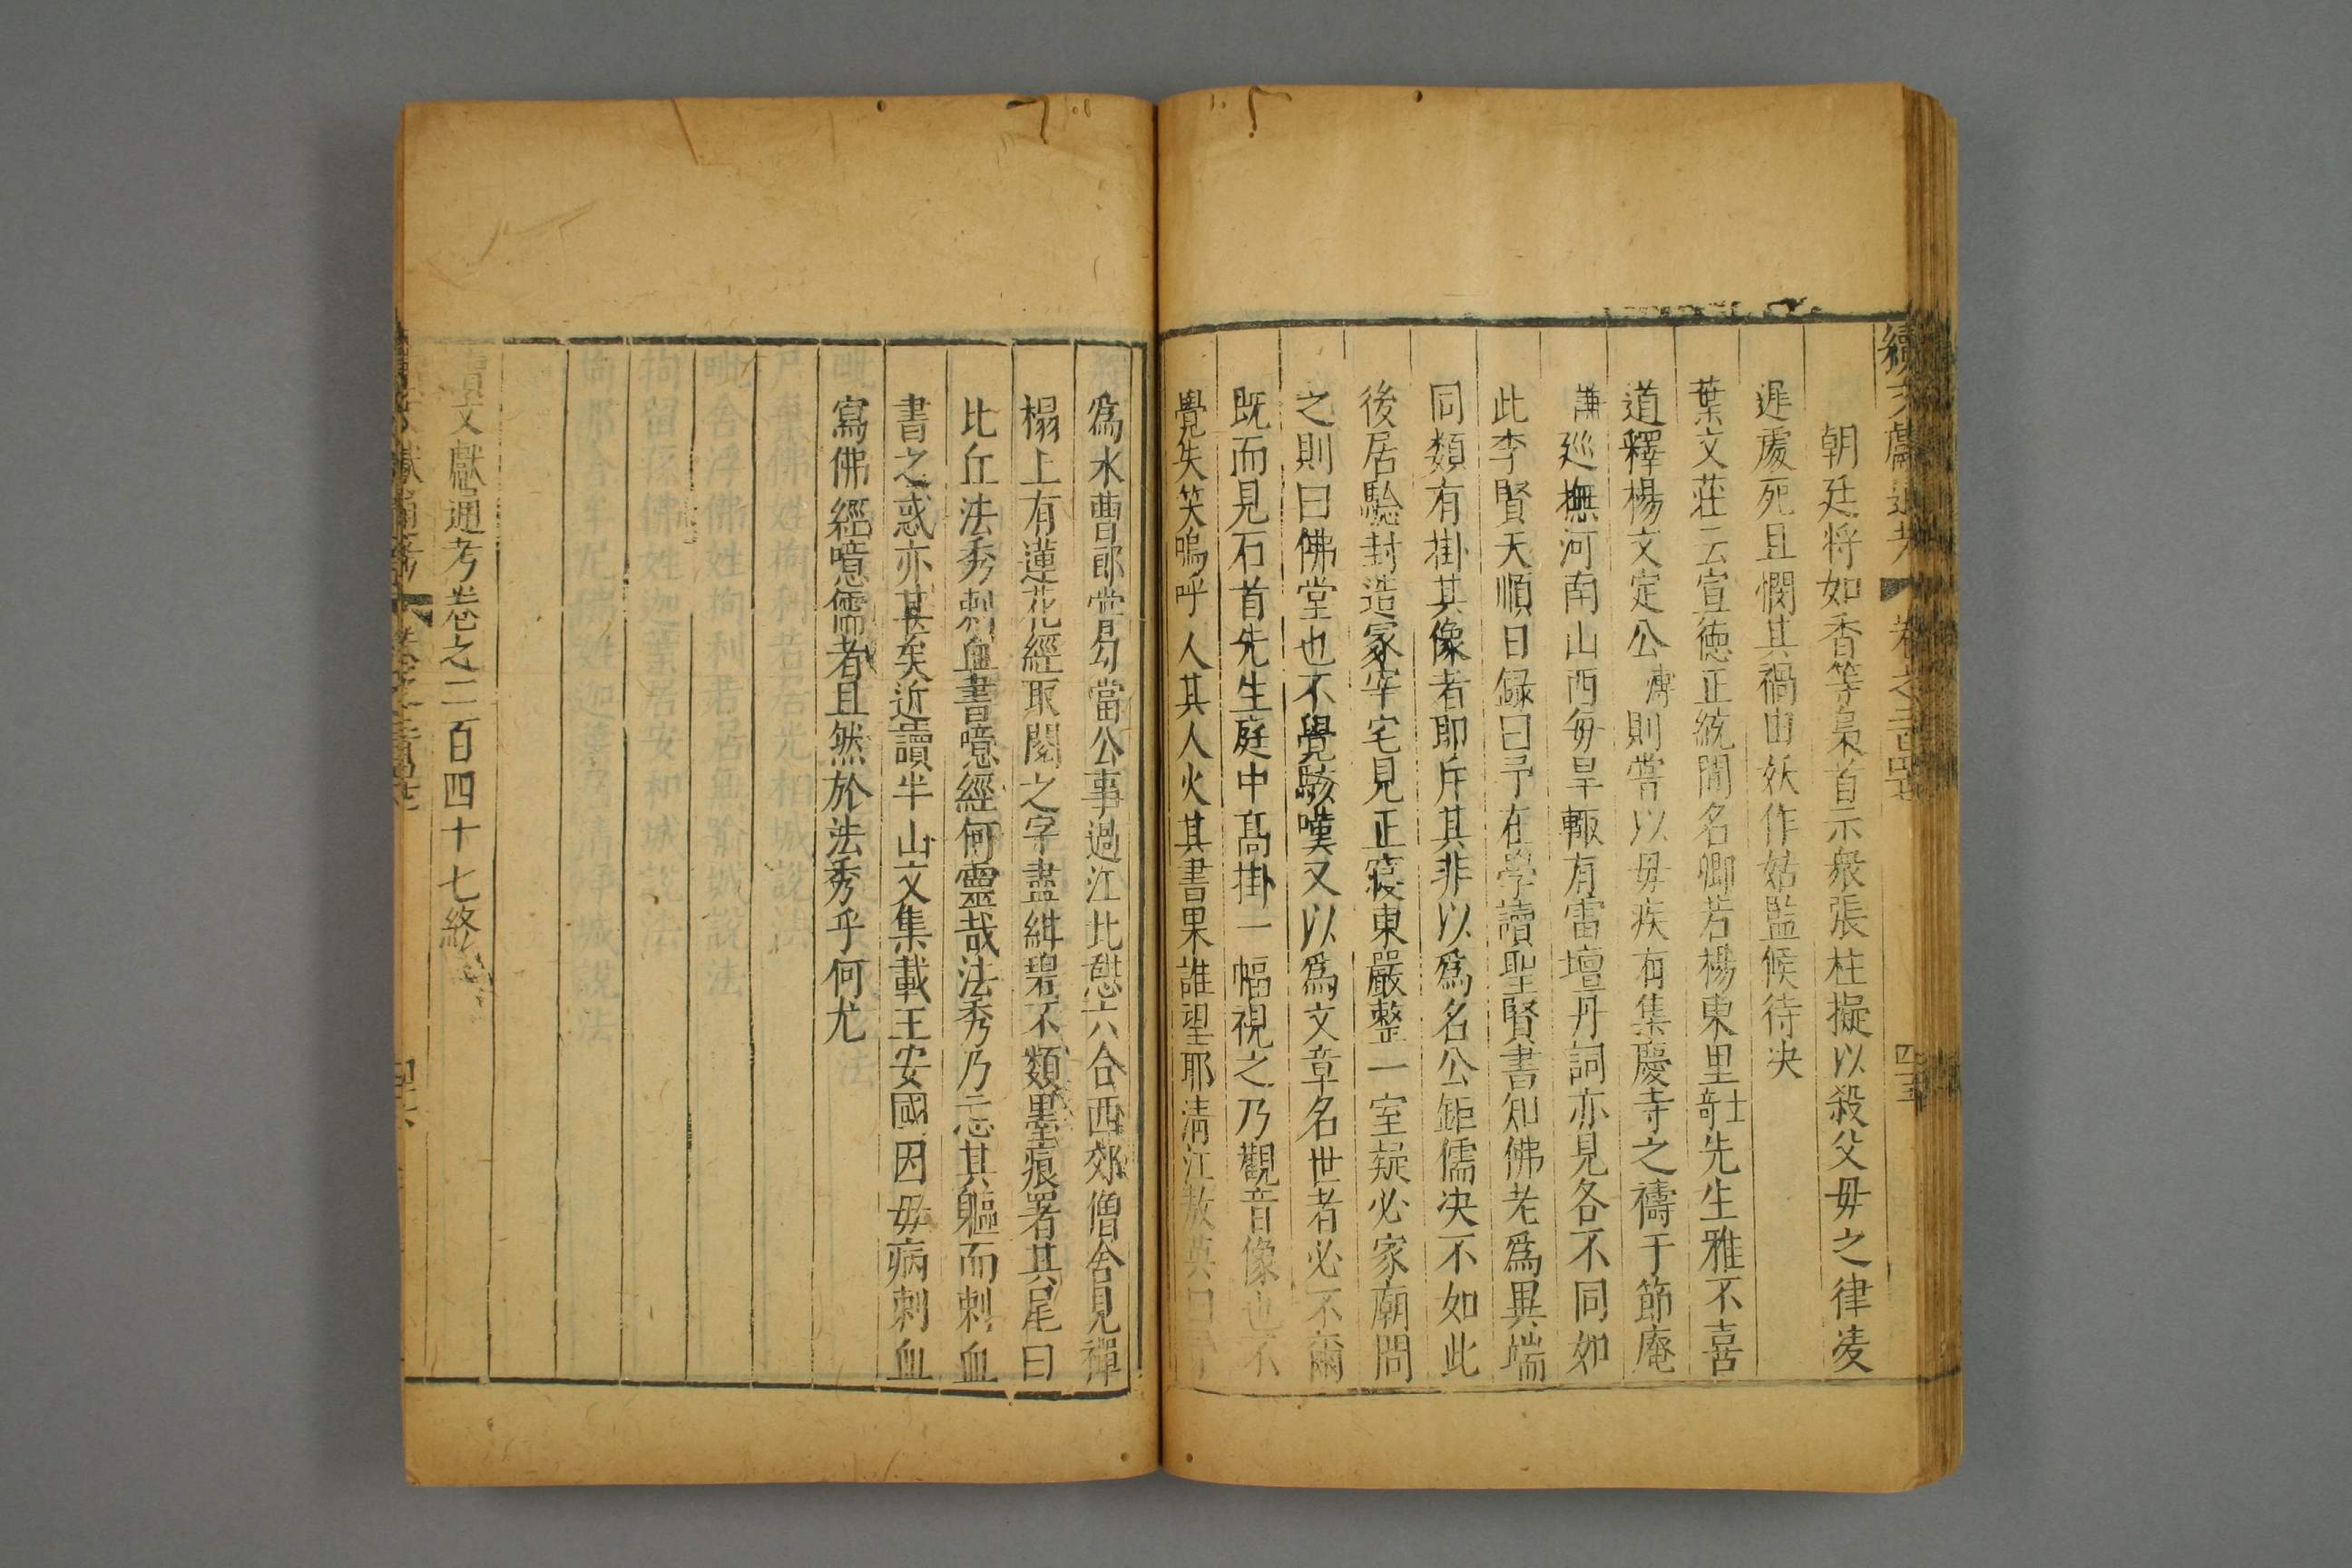 續文獻通考 卷之二百四十七 四五
朝廷將如香等梟首示衆張柱擬以殺父毋之律凌
遲處死且憫其禍由妖作姑監候待决
葉文莊云宣德正統間名卿若楊東里士竒先生雅不喜
道釋楊文定公溥則嘗以毋疾有集慶寺之禱于節庵
謙廵撫河南山西每旱輙有雷壇丹詞亦見各不同如
此李賢天順日録曰予在學讀聖賢書知佛老爲異端
同類有掛其像者即斥其非以爲名公鉅儒决不如此
後居驗封造冡宰宅見正寢東嚴整一室疑必家廟問
之則曰佛堂也不覺駭嘆又以爲文章名世者必不爾
既而見石首先生庭中髙掛一幅視之乃觀音像也不
覺失笑嗚呼人其人火其書果誰望耶淸江敖英曰予
爲水曹郎嘗勾當公事過江北憇六合西郊僧舍見禪
榻上有蓮花經取閱之字盡紺碧不類墨痕署其尾曰
比丘法秀刺血書噫經何靈哉法秀乃忘其軀而刺血
書之惑亦甚矣近讀半山文集載王安國因毋病刺血
寫佛經噫儒者且然於法秀乎何尤
續文獻通考卷之二百四十七終